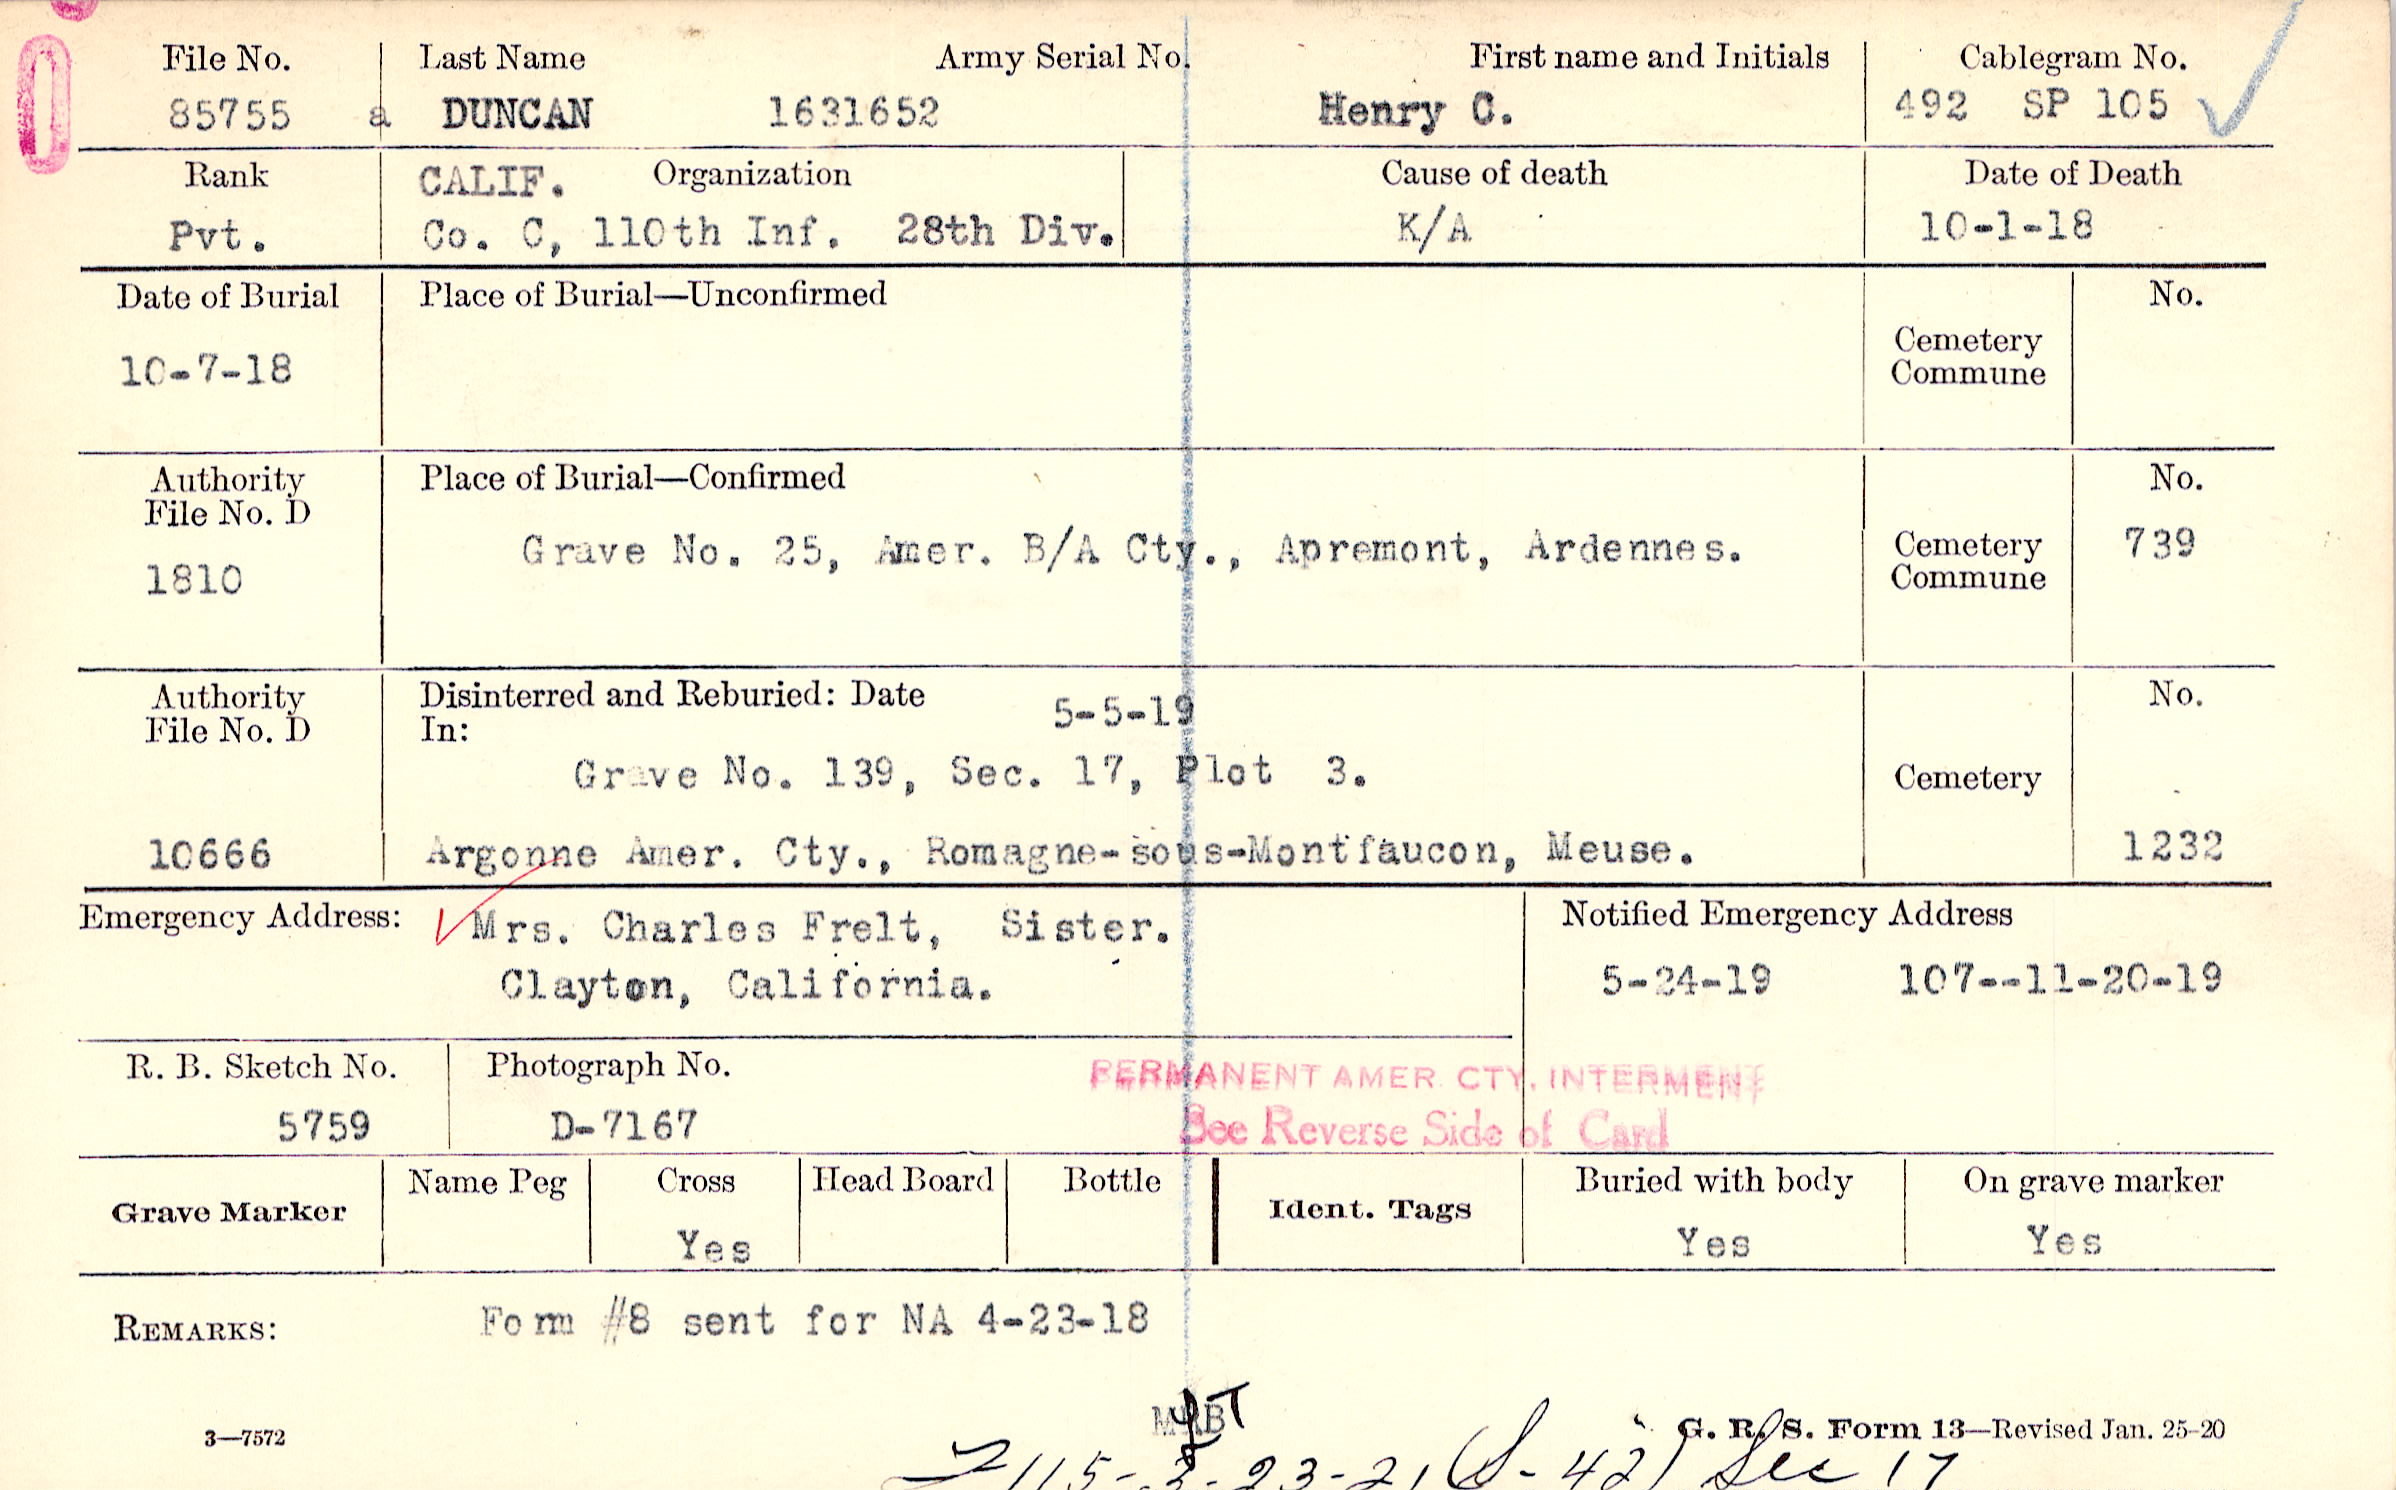 File No. Last Name Army Serial No. First name and Initials Cablegram No.
85755 a DUNCAN 1631652 Henry C. 492 SP 105
Rank CALIF. Organization Cause of death Date of Death
Pvt. Co. C, 110th Inf. 28th Div. K/A 10-1-18
Date of Burial Place of Burial—Unconfirmed No.
10-7-18 Cemetery
Commune
Authority Place of Burial—Confirmed No.
File No. D
1810 Grave No. 25, Amer. B/A Cty., Apremont, Ardennes. Cemetery 739
Commune
Authority Disinterred and Reburied: Date 5-5-19 No.
File No. D In:
Grave No. 139, Sec. 17, Plot 3. Cemetery
10666 Argonne Amer. Cty., Romagne-sous-Montfaucon, Meuse. 1232
Emergency Address: Mrs. Charles Frelt, Sister. Notified Emergency Address
Clayton, California. 5-24-19 107--11-20-19
R. B. Sketch No. Photograph No. PERMANENT AMER. CTY. INTERMENT
5759 D-7167 See Reverse Side of Card
Grave Marker Name Peg Cross Head Board Bottle Ident. Tags Buried with body On grave marker
Yes Yes Yes
REMARKS: Form #8 sent for NA 4-23-18
3—7572 G. R. S. Form 13—Revised Jan. 25-20
(S-42) Sec 17